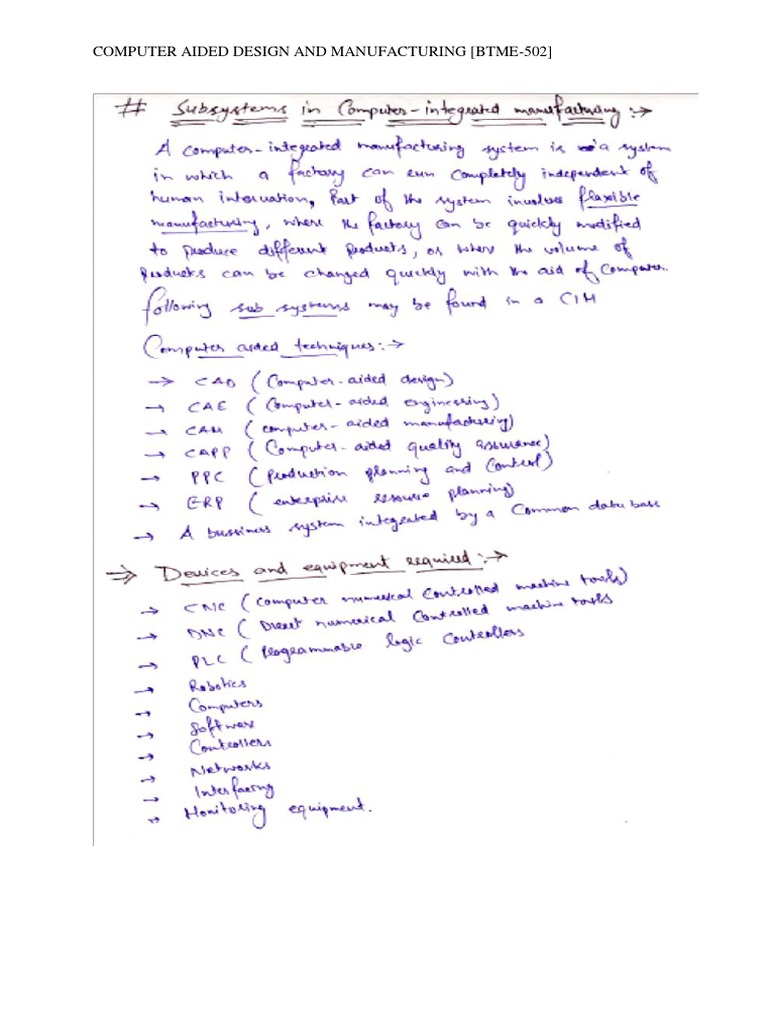 COMPUTER AIDED DESIGN AND MANUFACTURING [BTME-502]
# Subsystems in Computer-integrated manufacturing :->
A computer-integrated manufacturing system is a system
in which a factory can run completely independent of
human intervation, Part of the system involves flexible
manufacturing, where the factory can be quickly modified
to produce different products, or where the volume of
products can be changed quickly with the aid of Computer.
Following sub systems may be found in a CIM
Computer aided techniques :->
-> CAD (Computer-aided design)
-> CAE (Computer-aided engineering)
-> CAM (computer-aided manufacturing)
-> CAPP (Computer-aided quality assurance)
-> PPC (production planning and Control)
-> ERP (enterprise resource planning)
-> A bussiness system integrated by a Common data base
=> Devices and equipment required :->
-> CNC (Computer numerical Controlled machine tools)
-> DNC (Direct numerical Controlled machine tools
-> PLC (Programmable logic Controllers
-> Robotics
-> Computers
-> Software
-> Controllers
-> Networks
-> Interfacing
-> Monitoring equipment.